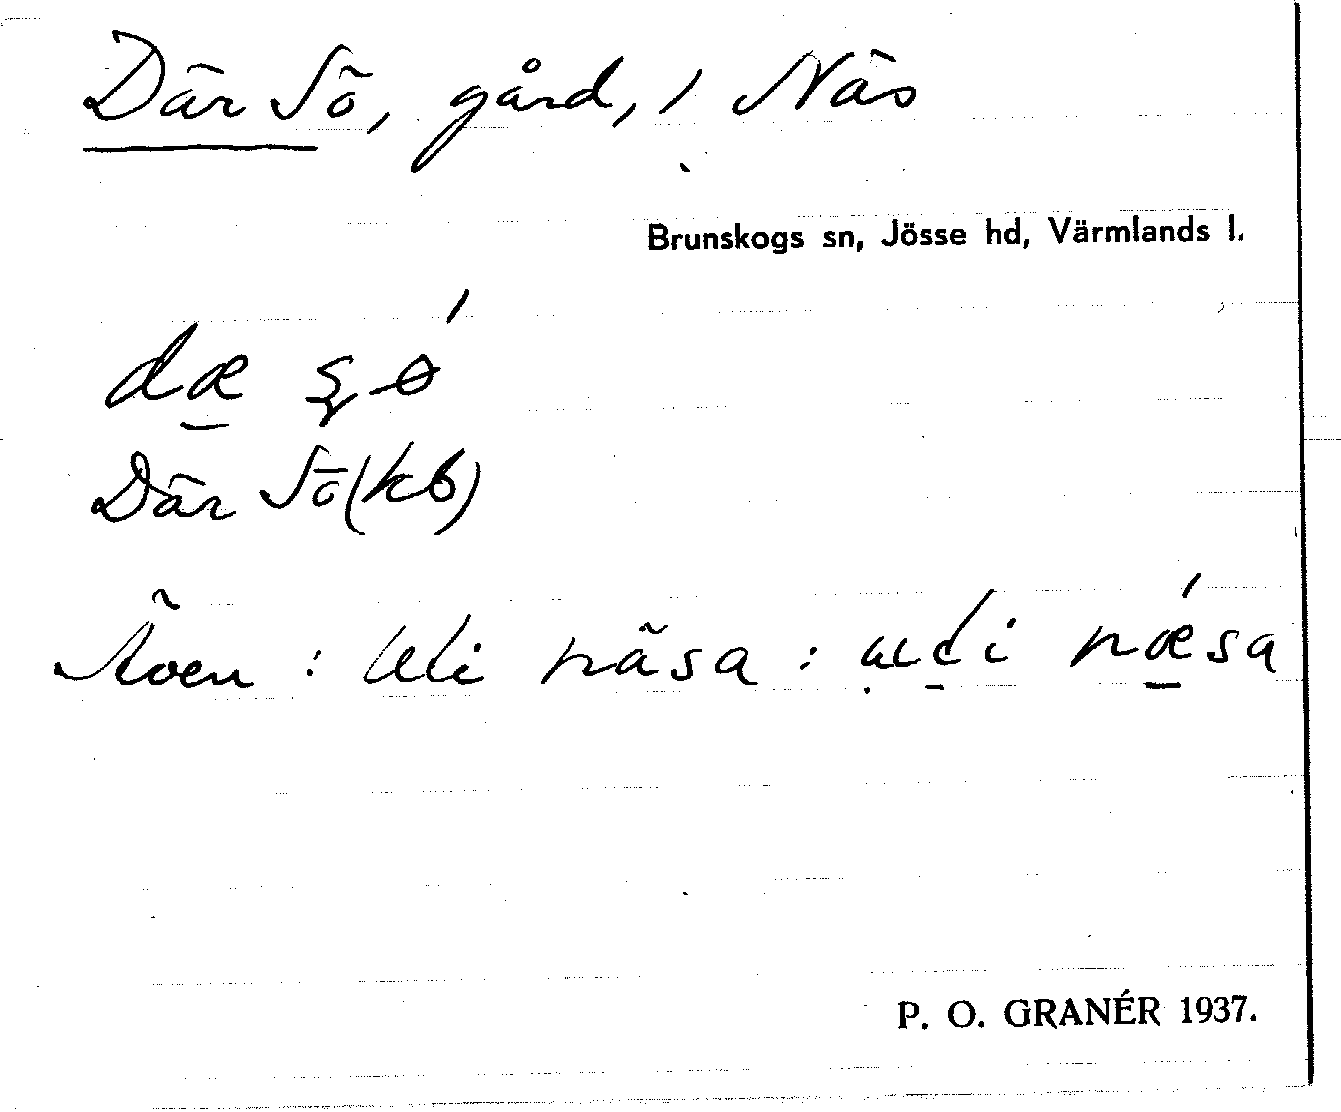 Där Sö, gård, i Näs
Brunskogs sn, Jösse hd, Värmlands l.
dæ
Där Sö (kb)
Även: Uti näsa: næsa
P. O. GRANÉR 1937.